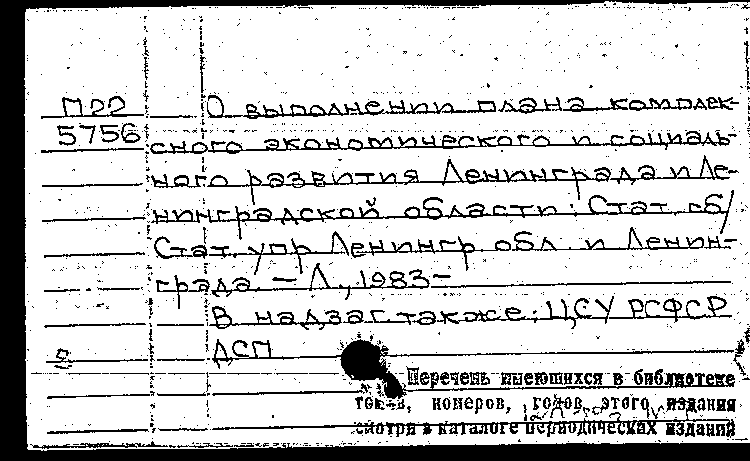 П22 О выполнении плана комплек-
5756 сного экономического и социаль-
ного развития Ленинграда и Ле-
нинградской области: Стат. сб/
Стат. упр Ленингр. обл и Ленин-
града. — Л., 1983 —
В надзаг. также: ЦСУ РСФСР
ДСП
Перечень имеющихся в библиотеке
томов, номеров, годов этого издания
смотри в каталоге периодических изданий